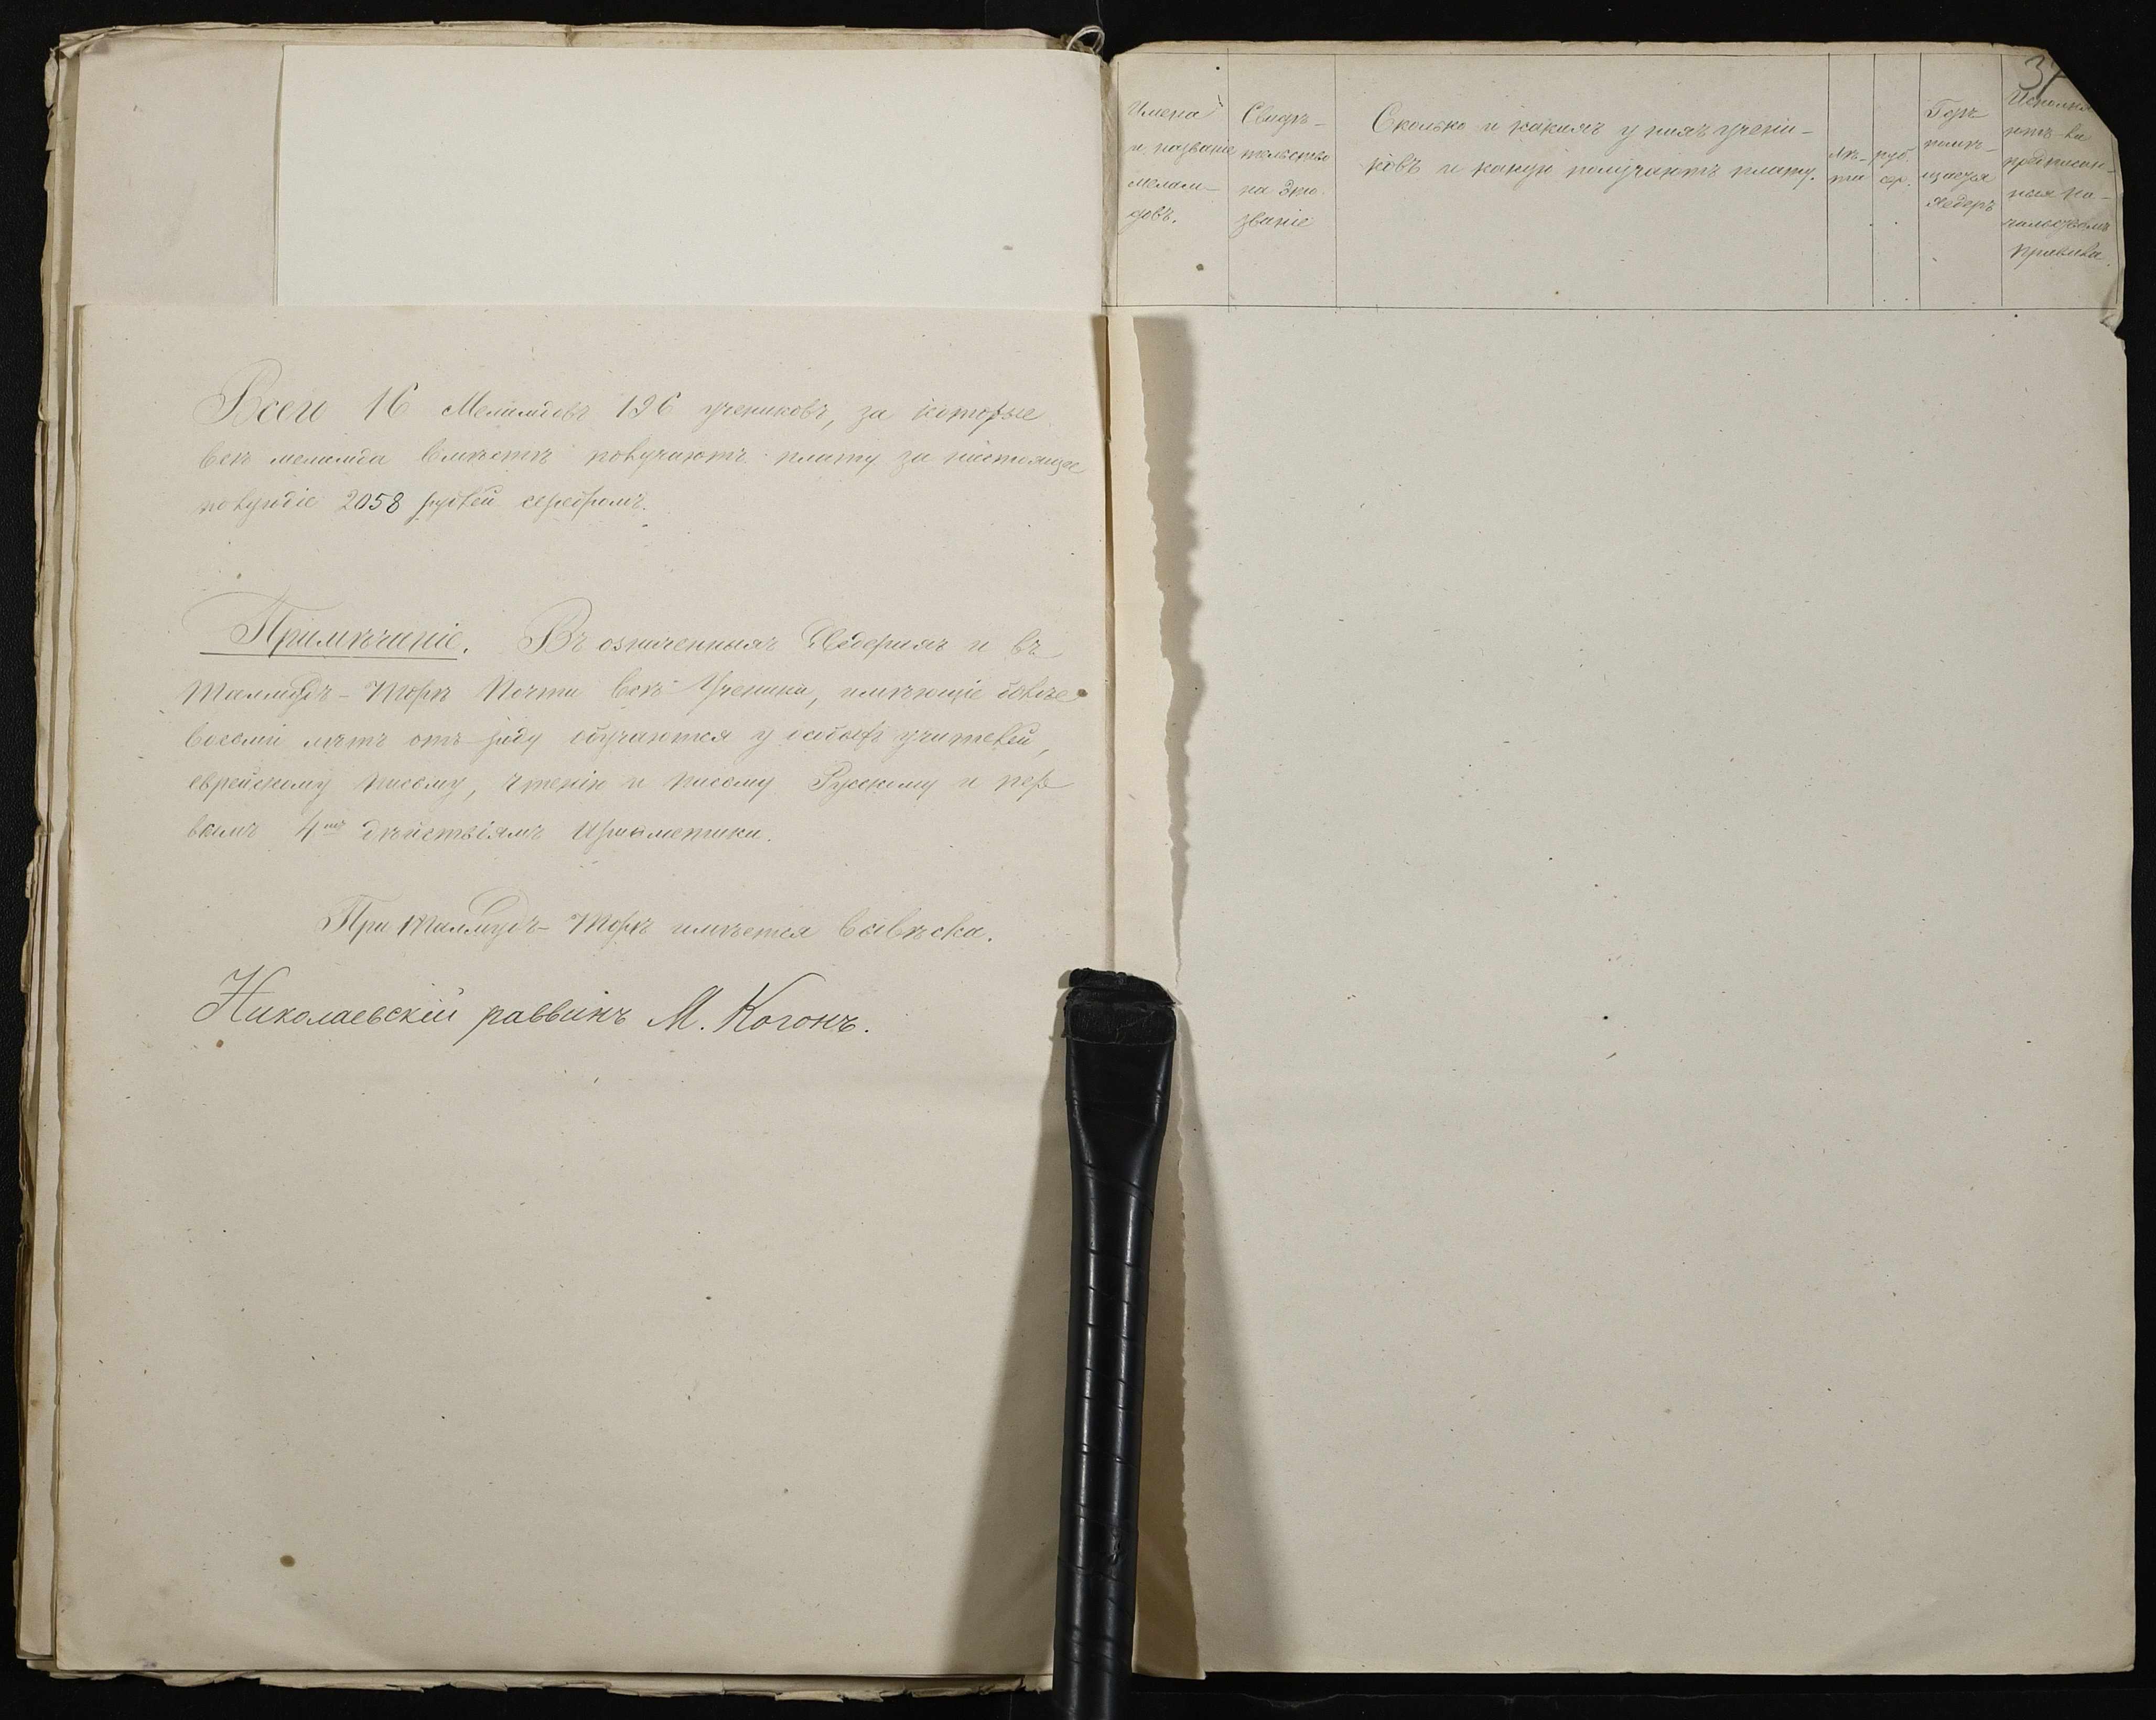 Всего 16 Меламдовъ 196 учениковъ, за которые
всѣ меламда вмѣстѣ получаютъ плату за настоящее
полугодіе 2058 рублей серебромъ.
Примѣчаніе. Въ означенныхъ Хедерахъ и въ
Талмудъ-Торѣ Почти всѣ Ученики, имѣющіе болѣе
восьми лѣтъ отъ роду обучаются у особыхъ учителей,
еврейскому письму, чтенію и письму Русскому и пер
вымъ 4мъ дѣйствіямъ Ариѳметики.
При Талмудъ-Торѣ имѣется вывѣска.
Николаевскій раввинъ М. Когонъ.
37
Имена
и названіе
мелам-
довъ.
Свидѣ-
тельство
на это
званіе
Сколько и какихъ у нихъ учени-
ковъ и какую получаютъ плату.
Лѣ-
та
руб.
сер.
Гдѣ
помѣ-
щается
хедеръ
Исполня
ютъ-ли
предписан-
ныя На-
чальствомъ
правила.